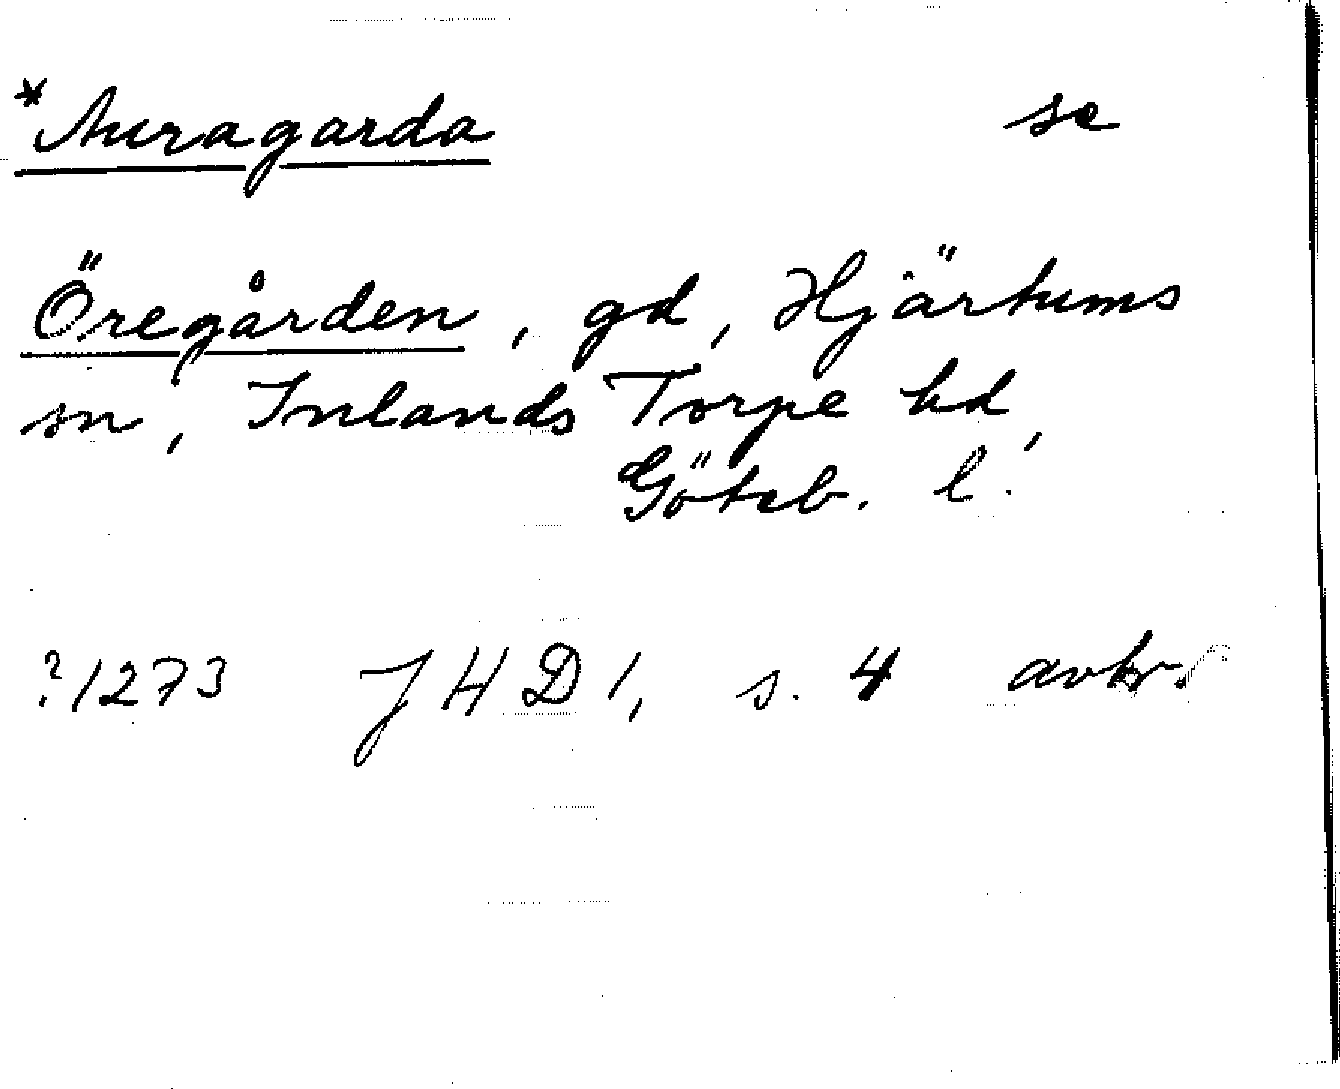 *Auragarda se
Öregården, gd, Hjärtums
sn, Inlands Torpe hd,
Göteb. l.
?1273 JHD 1, s. 4 avtr.